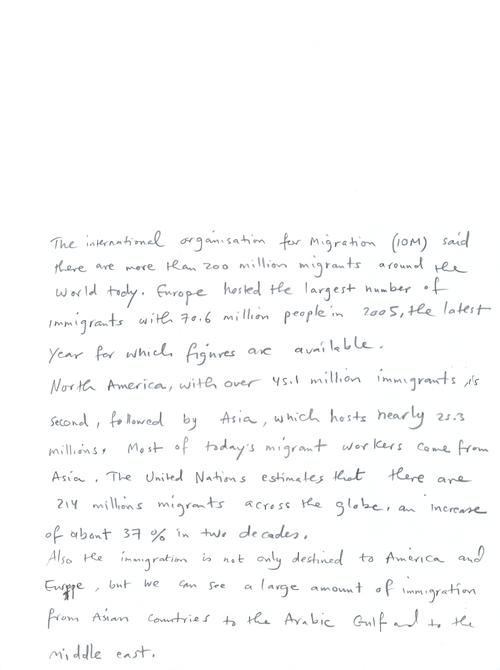 The international organisation for Migration (IOM) said
there are more than 200 million migrants around the
world tody. Europe hosted the largest number of
immigrants with 70.6 million people in 2005, the latest
year for which figures are available.
North America, with over 45.1 million immigrants is
second, followed by Asia, which hosts nearly 25.3
millions. Most of today's migrant workers come from
Asia. The United Nations estimates that there are
214 millions migrants across the globe, an increase
of about 37 % in two decades.
Also the immigration is not only destined to America and
Europe, but we can see a large amount of immigration
from Asian countries to the Arabic Gulf and to the
middle east.